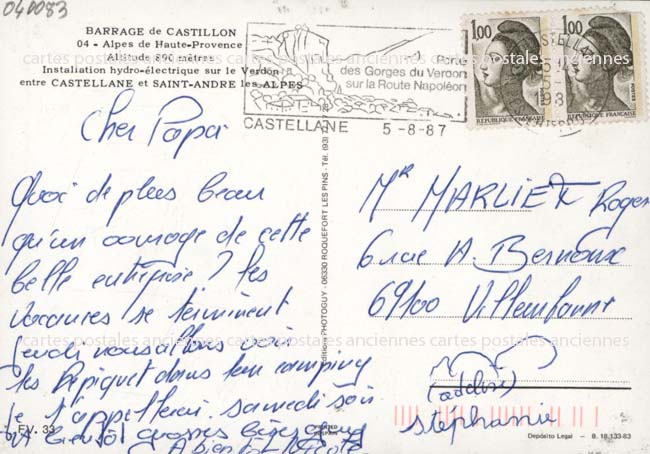 040083
BARRAGE de CASTILLON
04 - Alpes de Haute-Provence
Altitude 890 mètres
Instaliation hydro-électrique sur le Verdon
entre CASTELLANE et SAINT-ANDRE les ALPES
Porte
des Gorges du Verdon
sur la Route Napoléon
CASTELLANE 5-8-87
1,00
REPUBLIQUE FRANCAISE
1,00
REPUBLIQUE FRANCAISE
Cher Papa
Quoi de plus beau
qu'un ouvrage de cette
belle entreprise ? les
vacances se terminent
jeudi nous allons voir
les Pipiquet dans leur camping
je t'appellerai samedi soir
et bientôt grosses bises
A bientôt
Mr MARLIET Roger
6 rue A. Bernoux
69100 Villeurbanne
(adeline)
stephanie
Editions PHOTOGUY - 06330 ROQUEFORT LES PINS - Tél. (93)
F.V. 33
Depósito Legal - B. 18.133-83
cartes postales anciennes